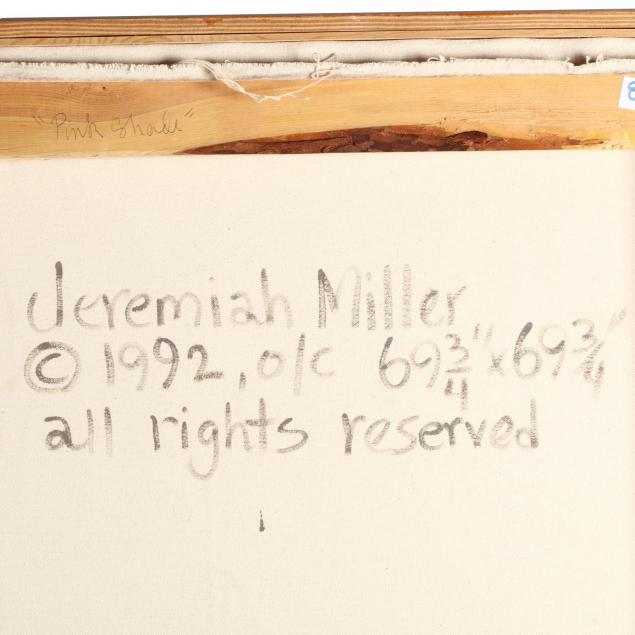 "Pink Shade"
Jeremiah Miller
© 1992, o/c 69 3/4" x 69 3/4"
all rights reserved